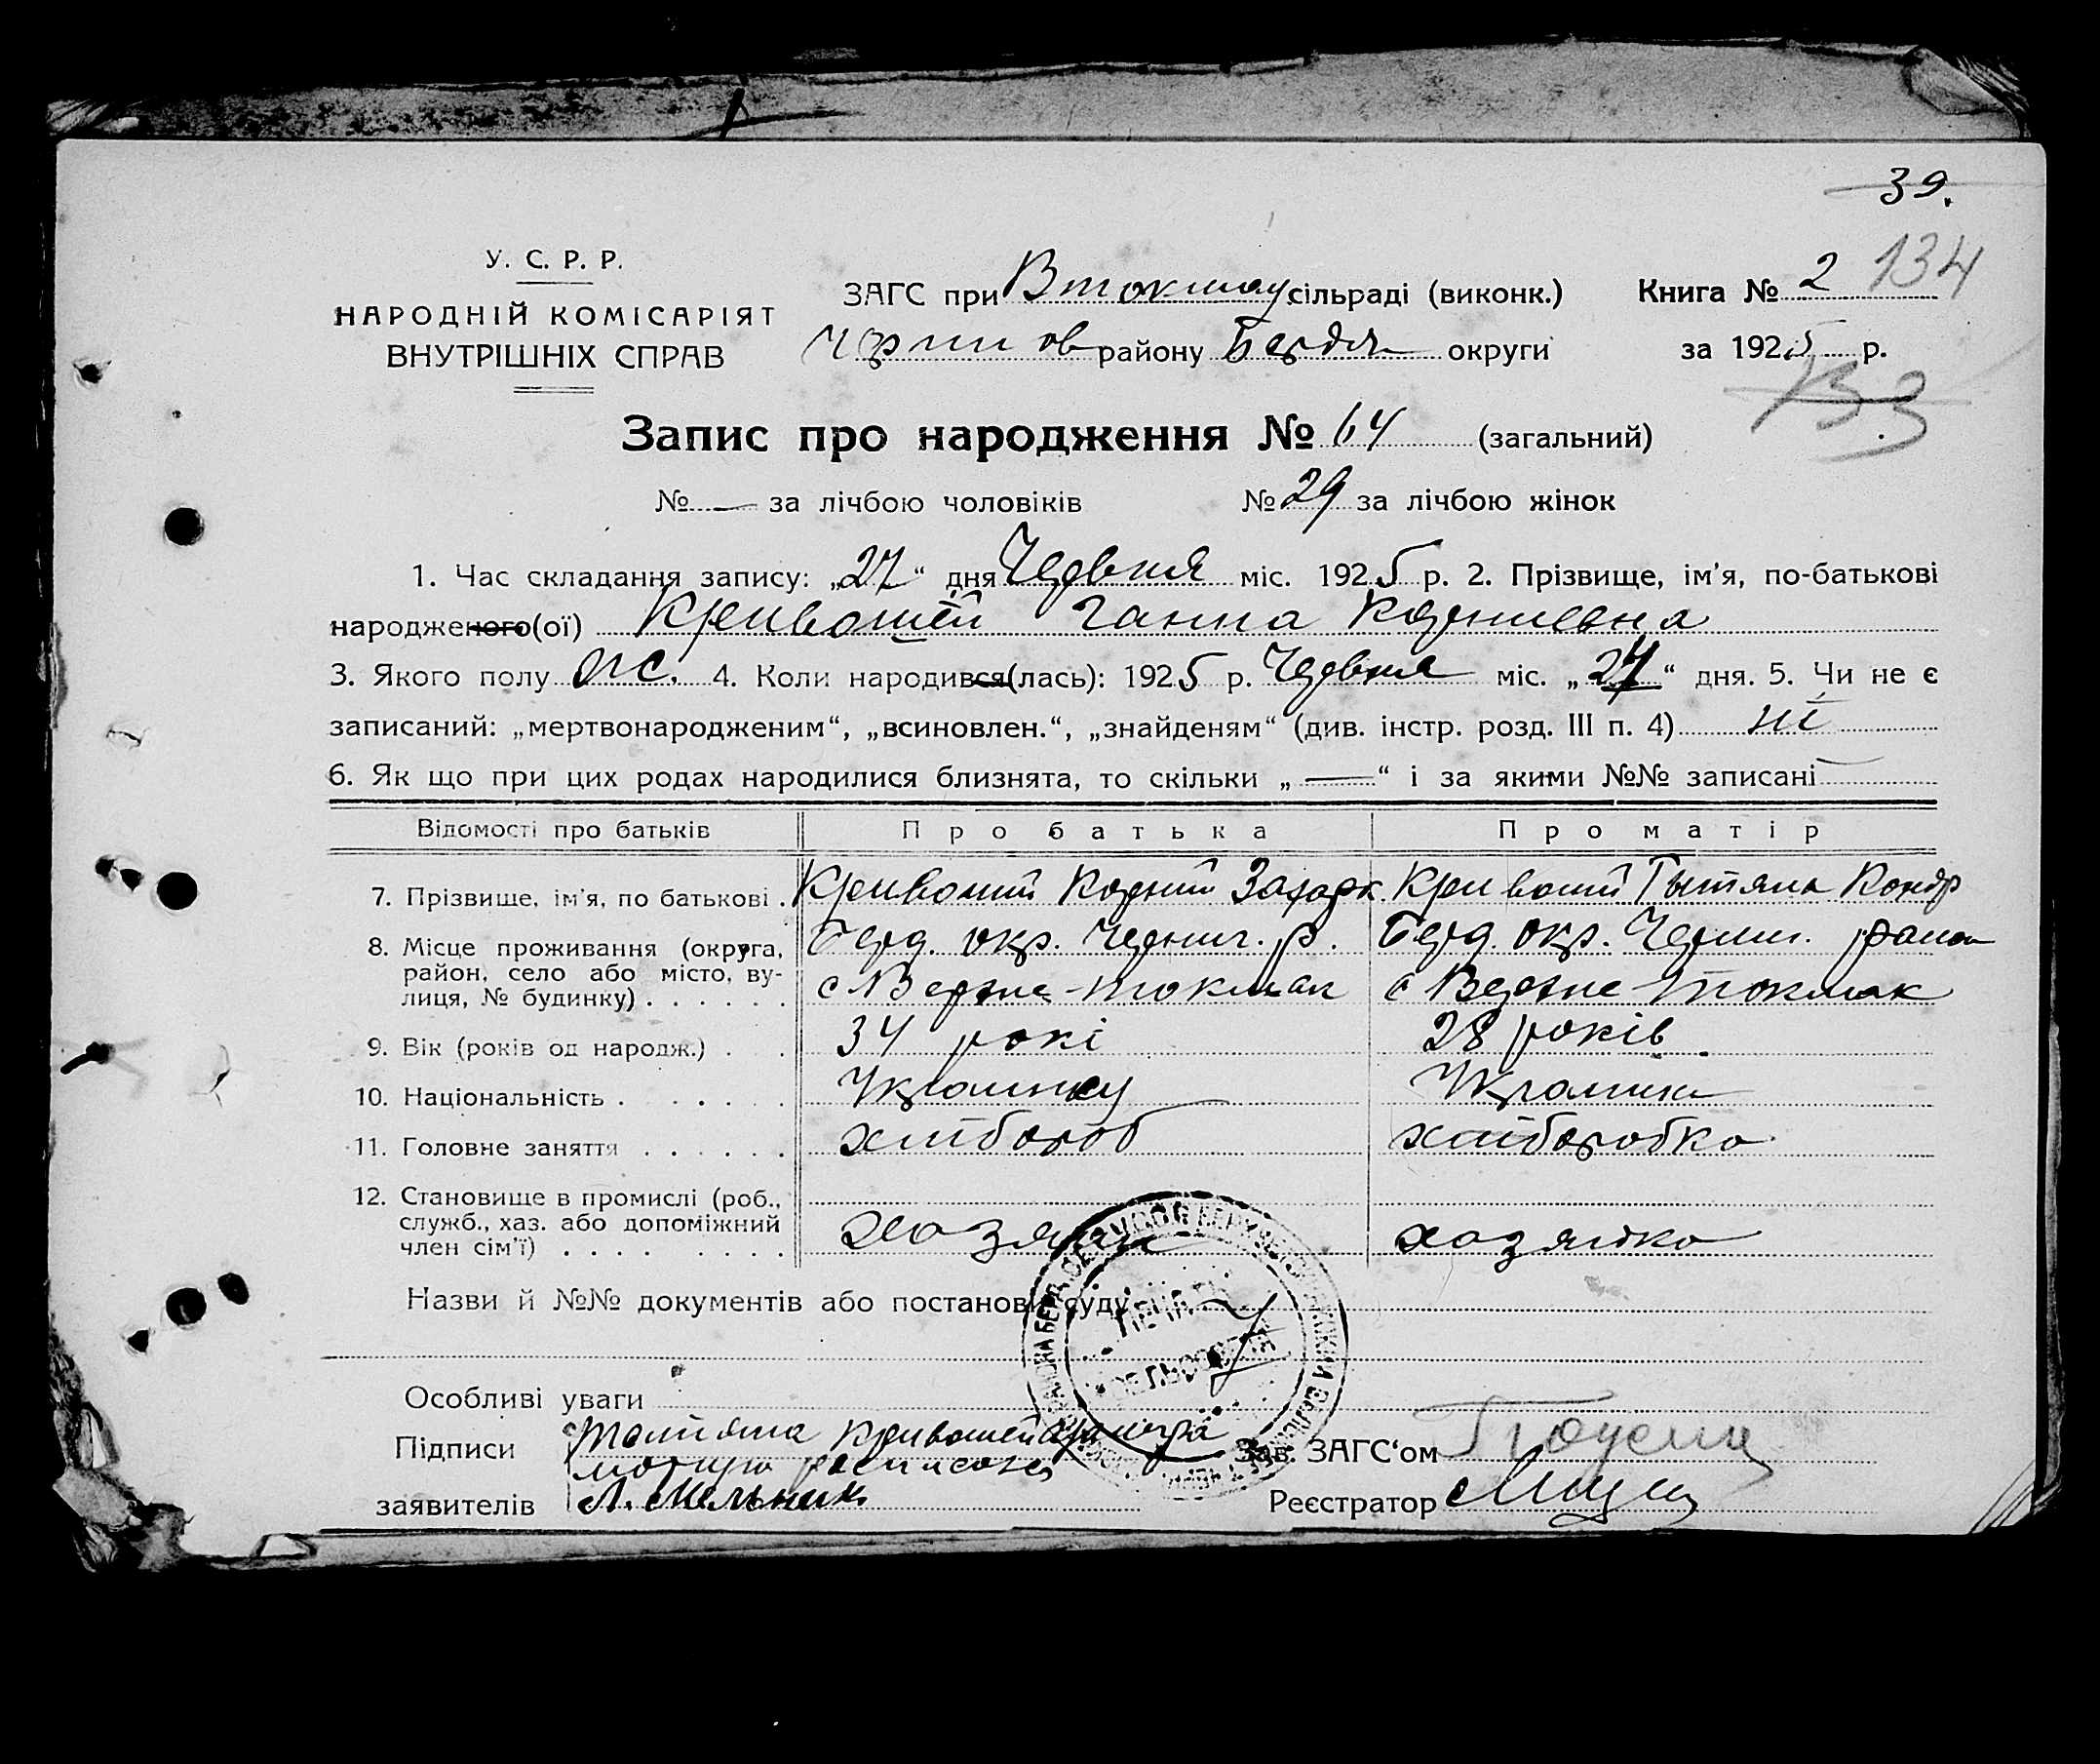 39.
У. С. Р. Р.
НАРОДНІЙ КОМІСАРІЯТ
ВНУТРІШНІХ СПРАВ
ЗАГС при Втокмац. сільраді (виконк.)
район​у Бердян округи
Книга № 2 134
за 1925 р.
133
Запис про народження № 64 (загальний)
№ — за лічбою чоловіків № 29 за лічбою жінок
1. Час складання запису: „27“ дня Червня міс. 1925 р. 2. Прізвище, ім'я, по-батькові
народженого(ої) Кривоший Ганна Корниевна
3. Якого полу ж. 4. Коли народився(лась): 1925 р. Червня міс. „27“ дня. 5. Чи не є
записаний: „мертвонародженим“, „всиновлен.“, „знайденям“ (див. інстр. розд. III п. 4) ні
6. Як що при цих родах народилися близнята, то скільки „—“ і за якими №№ записані —
Відомості про батьків Про батька Про матір
7. Прізвище, ім'я, по батькові . Кривоший Корний Захарк. Кривоший Тытяна Кондр
8. Місце проживання (округа, район, село або місто, вулиця, № будинку) . . . . . .
Берд. окр. Черниг. р. Берд. окр. Черниг. район
с Верхне-токмак с Верхне-токмак
9. Вік (років од народж.) . . 34 рокі 28 років
10. Національність . . . . . Украинец Украинка
11. Головне заняття . . . . . . хлібороб хліборобка
12. Становище в промислі (роб., служб., хаз. або допоміжний член сім'ї) . . . . . . . . .
хозяин хозяйка
Назви й №№ документів або постанови суду
Особливі уваги
Підписи Татяна Кривошей
заявителів Л. Мельник
Зав. ЗАГС‘ом
Реєстратор